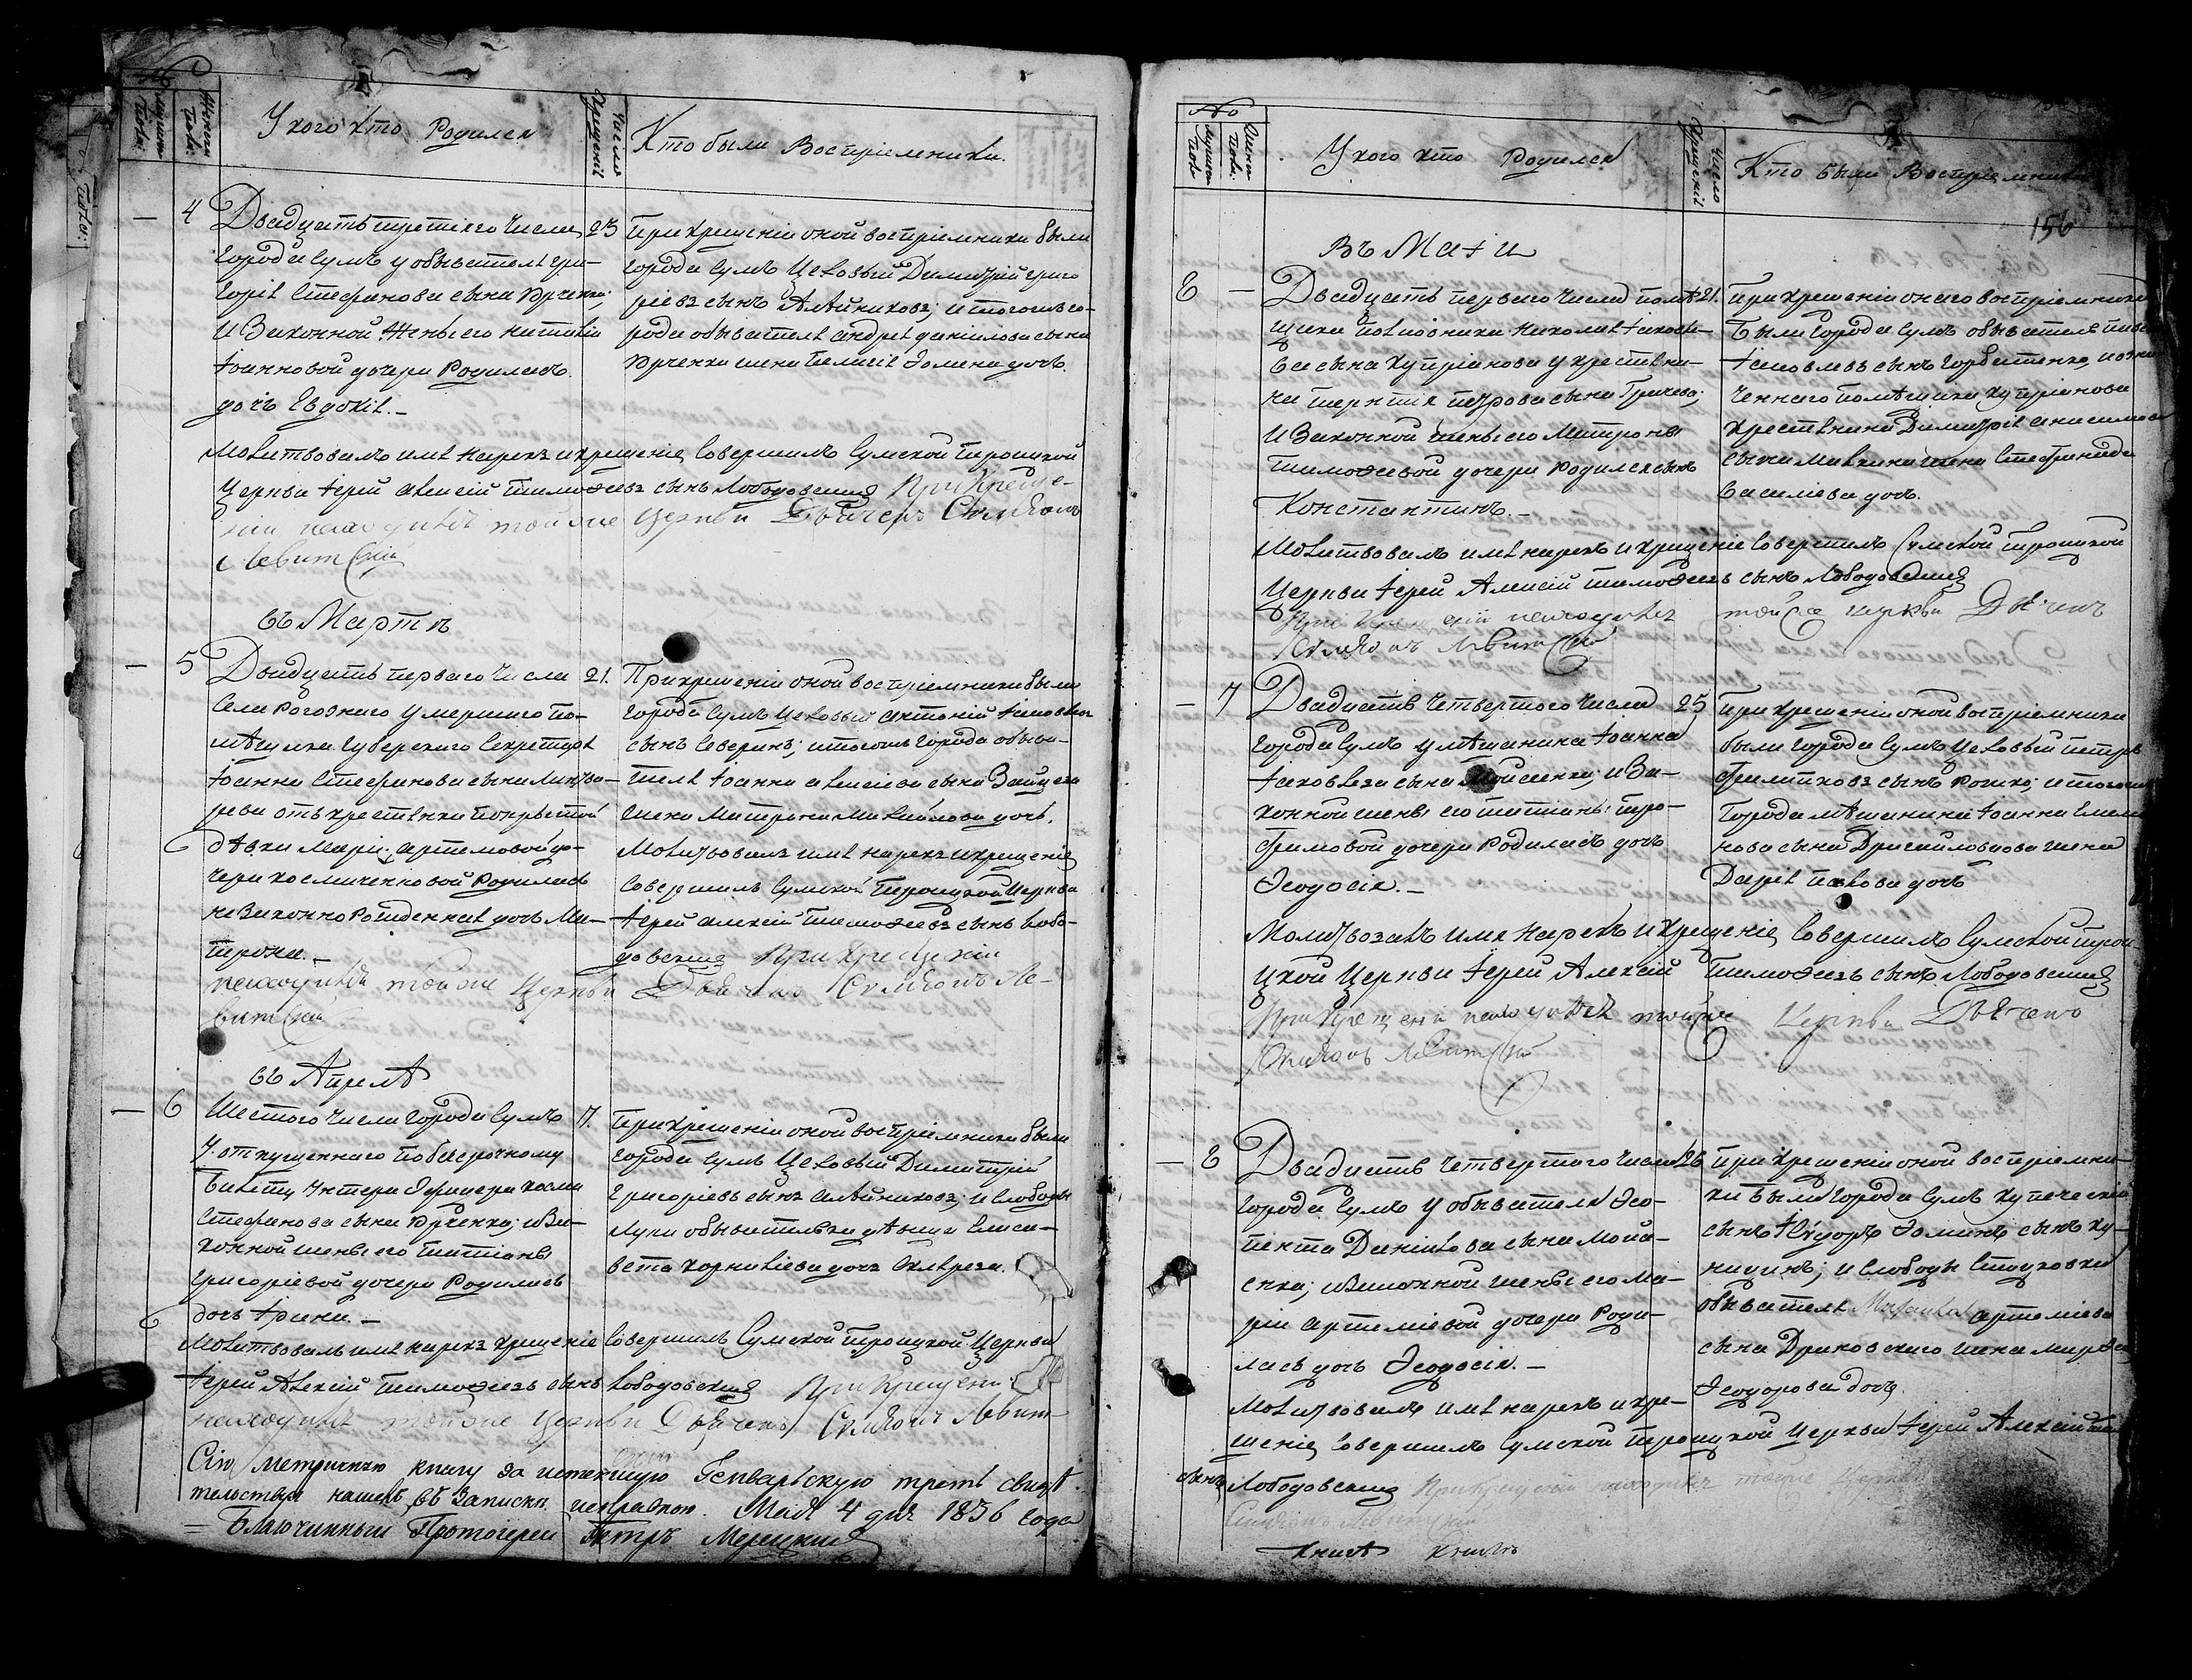 №
мужеска пола:
Женска пола:
У кого кто Родился
Число Крещенія
Кто были Воспріемники.
— 4
Двадцать третьяго Числа
города Сумъ у обывателя Гри-
горія Стефанова сына Юрченка;
и Законной Жены его Наталіи
Іоанновой дочери Родилась
дочь Евдокія. —
23
При крещеніи оной воспріемники были
города Сумъ Цеховый Димитрій Григо
ріевъ сынъ Алейниковъ; и тогожъ го-
рода обывателя Андрея Даніилова сына
Юрченка жена Пелагія Фомина дочь.
Молитвовалъ имя нарекъ и крещеніе совершилъ Сумской Троицкой
Церкви Іерей Алексій Тимофеевъ сынъ Лободовскій При Креще-
ніи находился тойже Церкви Дьячекъ Симеонъ
Левитскій
въ Мартѣ
— 5
Двадцать перваго Числа
села Рогознаго умершаго по-
мѣщика Губернскаго Секретаря
Іоанна Стефанова сына
отъ крестьянки покрытой
дѣвки Маріи Артемовой до-
чери Космиченковой Родилась
не Законно Рожденная дочь Ма-
трона. —
21.
При крещеніи оной воспріемники были
города Сумъ Цеховый Антоній Іаковлевъ
сынъ Северинъ; и тогожъ города обыва-
теля Іоанна Алексіева сына Зайцева
жена Матрона Михайлова дочь.
Молитвовалъ имя нарекъ и крещеніе
совершилъ Сумской Троицкой Церкви
Іерей Алексій Тимофеевъ сынъ Лобо-
довскій При Крещеніи
находился тойже Церкви Дьячекъ Симеонъ Ле-
витскій
въ Апрелѣ
— 6
Шестого Числа города Сумъ
У отпущеннаго по безсрочному
билету Унтера Офицера Косми
Стефанова сына Юрченка; и За-
конной жены его Татіаны
Григоріевой дочери Родилась
дочь Ирина. —
7.
При крещеніи оной воспріемники были
города Сумъ Цеховый Димитрій
Григоріевъ сынъ Алейниковъ; и слободы
Луки обывателька дѣвица Елиса-
вета Корниліева дочь
Молитвовалъ имя нарекъ крещеніе совершилъ Сумской Троицкой Церкви
Іерей Алексій Тимофеевъ сынъ Лободовскій При Крещеніи
находился тойже Церкви Дьячекъ Симеонъ Левит-
скій
Сію метричную книгу за истекшую Генварьскую треть свидѣ
тельствуя нашелъ въ записки исправною. Мая 4 дня 1836 года
= Благочинный Протоіерей Петръ Мерецкій
156
№
мужеска пола
женска пола:
У кого кто Родился
Число Крещенія
Кто были Воспріемники
Въ Маіи
6 —
Двадцать перваго Числа помѣ-
щика Полковника Николая Іаковле-
ва сына Купріанова у крестьяни-
на Терентія Петрова сына Грачева;
и Законной жены его Матроны
Тимофеевой дочери родился сынъ
Константинъ. —
21.
При крещеніи онаго воспріемники
были города Сумъ обыватель
Іаковлевъ сынъ Горбатенко, и означ
ченнаго помѣщика Купріанова
крестьянина Димитрія
сына жена Стефанида
Василіева дочь.
Молитвовалъ имя нарекъ и крещеніе совершилъ Сумской Троицкой
Церкви Іерей Алексій Тимофеевъ сынъ Лободовскій
При Крещеніи находился тойже Церкви Дьячекъ
Симеонъ Левитскій
— 7
Двадцать Четвертого Числа
города Сумъ у мѣщанина Іоанна
Іаковлева сына Мойсенка; и За-
конной жены его Татіаны Тро-
фимовой дочери родилась дочь
Феодосія. —
25
При крещеніи оной воспріемники
были города Сумъ Цеховый Петръ
сынъ и тогожъ
города мѣщанина Іоанна
сына жена
Дарія Павлова дочь
Молитвовалъ имя нарекъ и крещеніе совершилъ Сумской Трои
цкой Церкви Іерей Алексій Тимофеевъ сынъ Лободовскій
При Крещеніи находился тойже Церкви Дьячекъ
Симеонъ Левитскій
— 8
Двадцать Четвертого Числа
города Сумъ у обывателя Фео-
пемпта Даніилова сына Мойс-
енка; и Законной жены его Ма-
ріи Артеміевой дочери Роди-
лась дочь Феодосія. —
26
При крещеніи оной воспріемни-
ки были города Сумъ купеческій
сынъ Феодоръ Фоминъ сынъ Ку-
; и слободы
обывателя Артеміева
сына жена
Феодорова дочь.
Молитвовалъ имя нарекъ и кре-
щеніе совершилъ Сумской Троицкой Церкви Іерей Алексій
сынъ Лободовскій При Крещеніи находился тойже Церкви
Симеонъ Левитскій